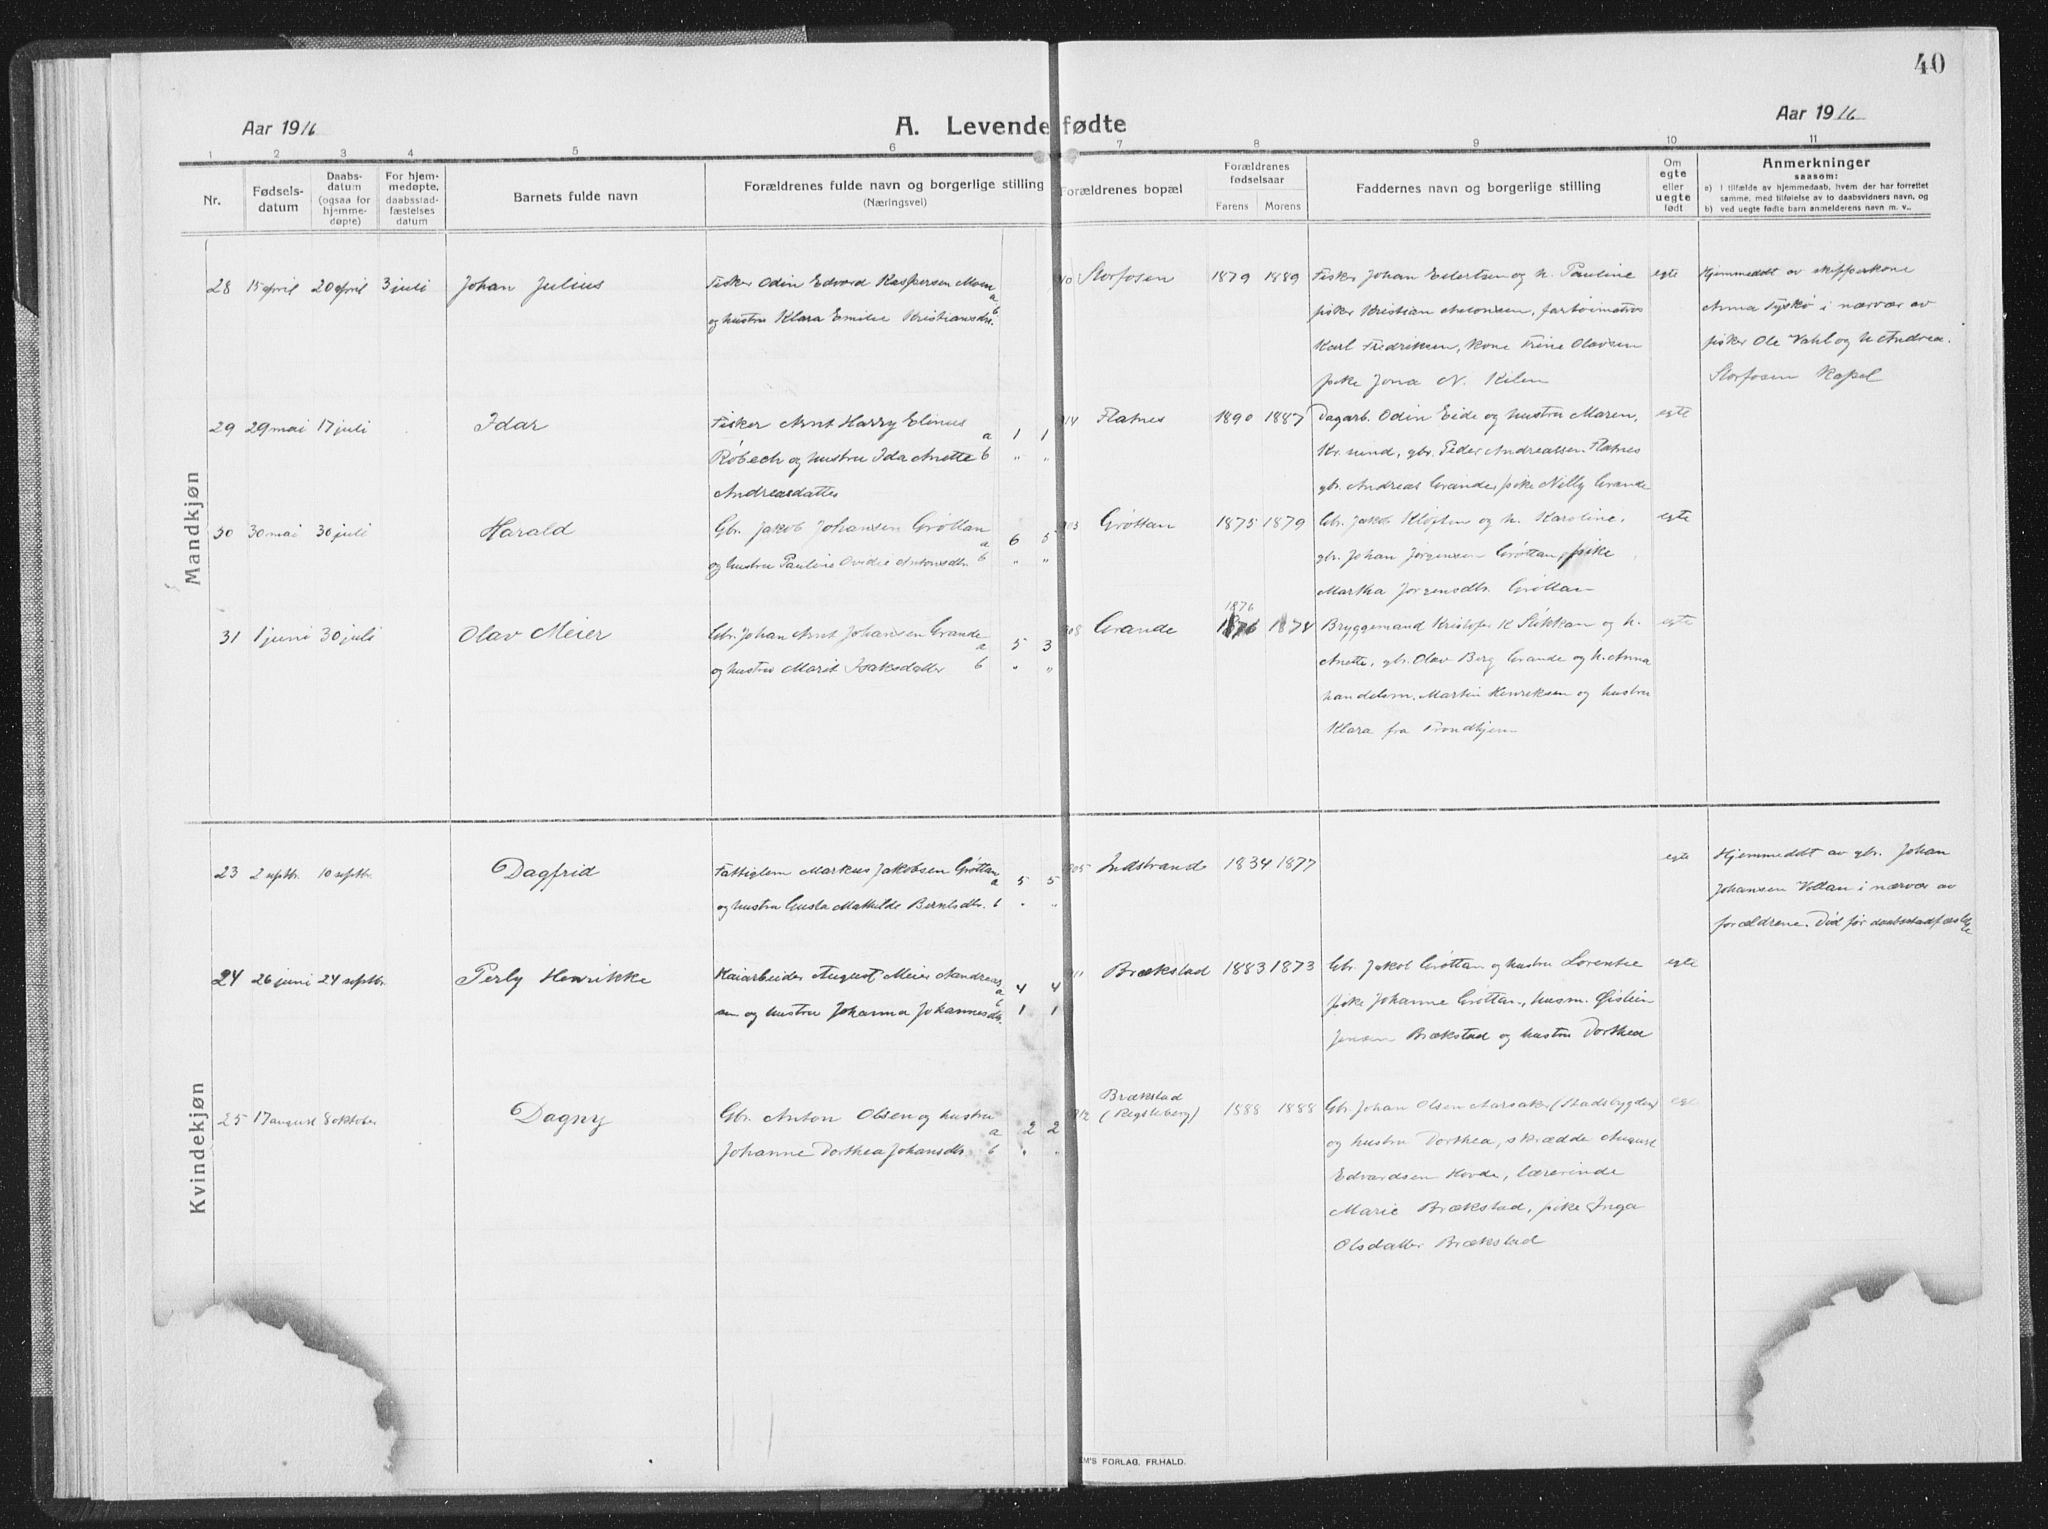 40
Aar 1916
A. Levendefødte
Aar 1916
1 2 3 4 5 6 7 8 9 10 11
Nr.
Fødsels-
datum
Daabs-
datum
(ogsaa for
hjemme-
døpte)
For hjem-
medøpte,
daabsstad-
fæstelses
datum
Barnets fulde navn
Forældrenes fulde navn og borgerlige stilling
(Næringsvei)
Forældrenes bopæl
Forældrenes
fødselsaar
Farens Morens
Faddernes navn og borgerlige stilling
Om
egte
eller
uegte
født
Anmerkninger
saasom:
a) I tilfælde av hjemmedaab, hvem der har forrettet
samme, med tilføielse av to daabsvidners navn, og
b) ved uegte fødte barn anmelderens navn m. v..
Mandkjøn
28 15 april 20 april 3 juli Johan Julius
Fisker Odin Edvard Kaspersen
og hustru Klara Emilie Kristiansdtr.
a
b
Storfosen 1879 1889
Fisker Johan Eilertsen og h. Pauline
fisker Kristian
Karl Fredriksen, Kone Trine Olavsen
pike Jona N. Kilen
egte
Hjemmedøbt av skipperkone
Anna Tyskø i nærvær av
fisker Ole Vahl og h. Andrea.
Storfosen Kapel
29 29 mai 17 juli Idar
Fisker Arnt Harry Elinus
Röbech og hustru Ida Anette
Andreasdatter
a 1 1
b " "
914 Flatnes 1890 1887
Dagarb. Odin Eide og hustru Maren,
gbr. Peder Andreassen Flatnes
gbr. Andreas Grande, pike Nelly Grande
egte
30 30 mai 30 juli Harald
Gbr. Jakob Johansen Grøttan
og hustru Pauline Ovidie Antonsdtr.
a 6 5
b " "
903 Grøttan 1875 1879
Gbr. Jakob Kløften og h. Karoline,
gbr. Johan Jørgensen Grøttan, pike
Martha Jørgensdtr. Grøttan
egte
31 1 juni 30 juli Olav Meier
Gbr. Johan Arnt Johansen Grande
og hustru Marit Isaksdatter
a 5 3
b " "
908 Grande
1876
1876 1874
Bryggemand Kristofer K Slikkan og h.
Anette, gbr. Olav Berg Grande og h. Anna
handelsm. Martin Henriksen og hustru
Klara fra Trondhjem
egte
Kvindekjøn
23 2 septbr. 10 septbr. Dagfrid
Fattiglem Markus Jakobsen Grøttan
og hustru Gusta Mathilde Berntsdtr.
a 5 5
b " "
905 Indstrand 1834 1877
egte
Hjemmedøbt av gbr. Johan
Johansen Voltan i nærvær av
forældrene. Död før daabsstadfæstelse
24 26 juni 24 septbr. Perly Henrikke
Kaiarbeider August Meier Andreas-
sen og hustru Johanna Johannesdtr.
a 4 4
b 1 1
911 Brækstad 1883 1873
Gbr. Jakob Grøttan og hustru Lorentse
pike Johanne Grøttan, husm. Øistein
Jensen Brækstad og hustru Dorthea
egte
25 17 august 8 oktober Dagny
Gbr. Anton Olsen og hustru
Johanne Dorthea Johansdtr.
a 2 2
b " "
912 Brækstad
(Rigsteberg)
1888 1888
Gbr. Johan Olsen Aarsaker (Stadsbygden)
og hustru Dorthea, skrædder August
Edvardsen Hovde, lærerinde
Marie Brækstad, pike Inga
Olsdatter Brækstad
egte
EM'S FORLAG. FR.HALD.